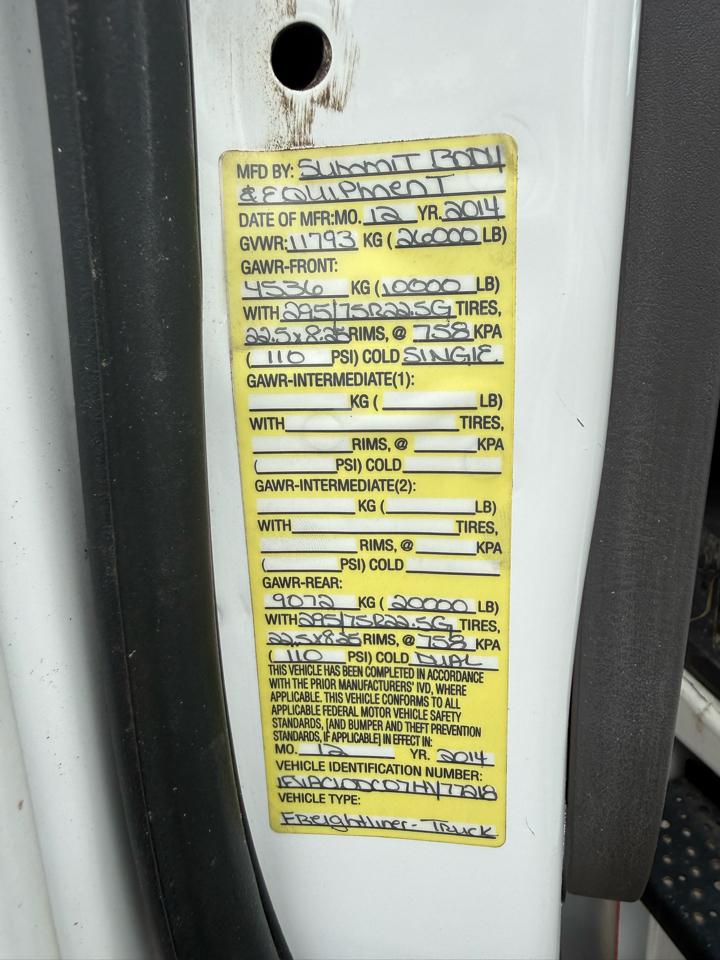 MFD BY: SUMMIT BODY
& EQUIPMENT
DATE OF MFR:MO. 12 YR. 2014
GVWR: 11793 KG ( 26000 LB)
GAWR-FRONT:
4536 KG ( 10000 LB)
WITH 295/75R22.5G TIRES,
22.5x8.25 RIMS, @ 758 KPA
( 110 PSI) COLD SINGLE
GAWR-INTERMEDIATE(1):
KG ( LB)
WITH TIRES,
RIMS, @ KPA
( PSI) COLD
GAWR-INTERMEDIATE(2):
KG ( LB)
WITH TIRES,
RIMS, @ KPA
( PSI) COLD
GAWR-REAR:
9072 KG ( 20000 LB)
WITH 295/75R22.5G TIRES,
22.5x8.25 RIMS, @ 758 KPA
( 110 PSI) COLD DUAL
THIS VEHICLE HAS BEEN COMPLETED IN ACCORDANCE
WITH THE PRIOR MANUFACTURERS' IVD, WHERE
APPLICABLE. THIS VEHICLE CONFORMS TO ALL
APPLICABLE FEDERAL MOTOR VEHICLE SAFETY
STANDARDS, [AND BUMPER AND THEFT PREVENTION
STANDARDS, IF APPLICABLE] IN EFFECT IN:
MO. 12 YR. 2014
VEHICLE IDENTIFICATION NUMBER:
VEHICLE TYPE:
Freightliner - Truck